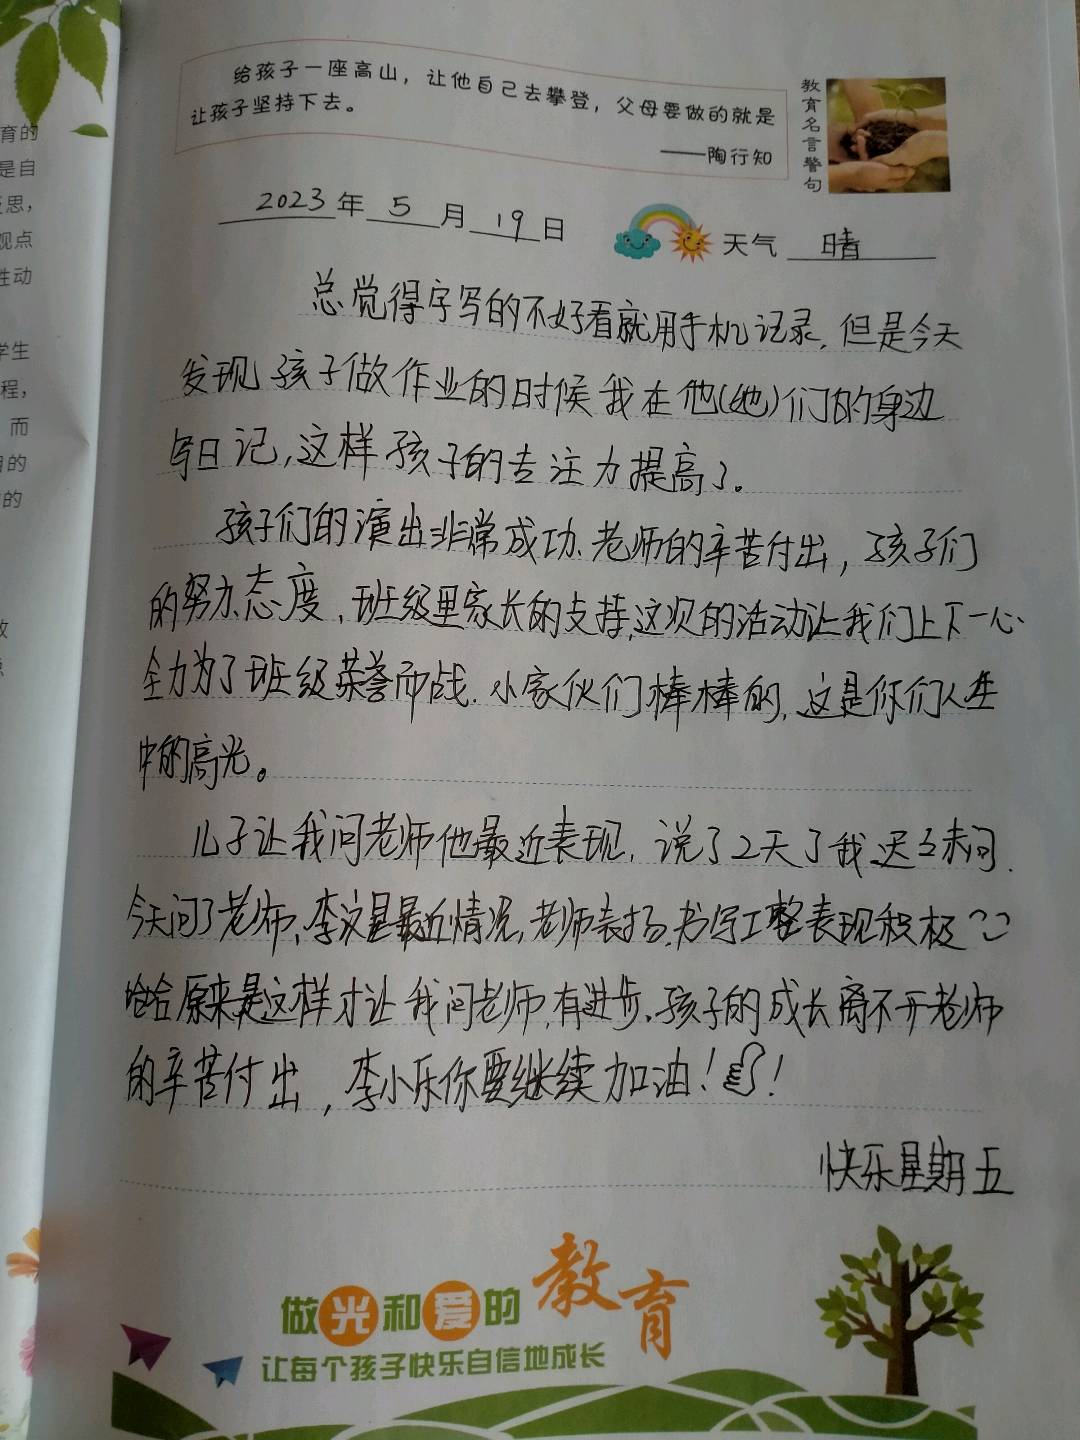 育的
是自
反思，
观点
性动
学生
程，
而
的
给孩子一座高山，让他自己去攀登，父母要做的就是
让孩子坚持下去。
——陶行知
教育名言警句
2023年5月19日
天气 晴
总觉得字写的不好看就用手机记录，但是今天
发现孩子做作业的时候我在他(她)们的身边
写日记，这样孩子的专注力提高了。
孩子们的演出非常成功、老师的辛苦付出，孩子们
的努力态度，班级里家长的支持，这次的活动让我们上下一心
全力为了班级荣誉而战．小家伙们棒棒的，这是你们人生
中的高光。
儿子让我问老师他最近表现，说了2天了我迟迟未问．
今天问了老师，李汶星最近情况，老师表扬，书写工整表现积极
哈哈原来是这样才让我问老师，有进步，孩子的成长离不开老师
的辛苦付出，李小乐你要继续加油！！
快乐星期五
做光和爱的教育
让每个孩子快乐自信地成长